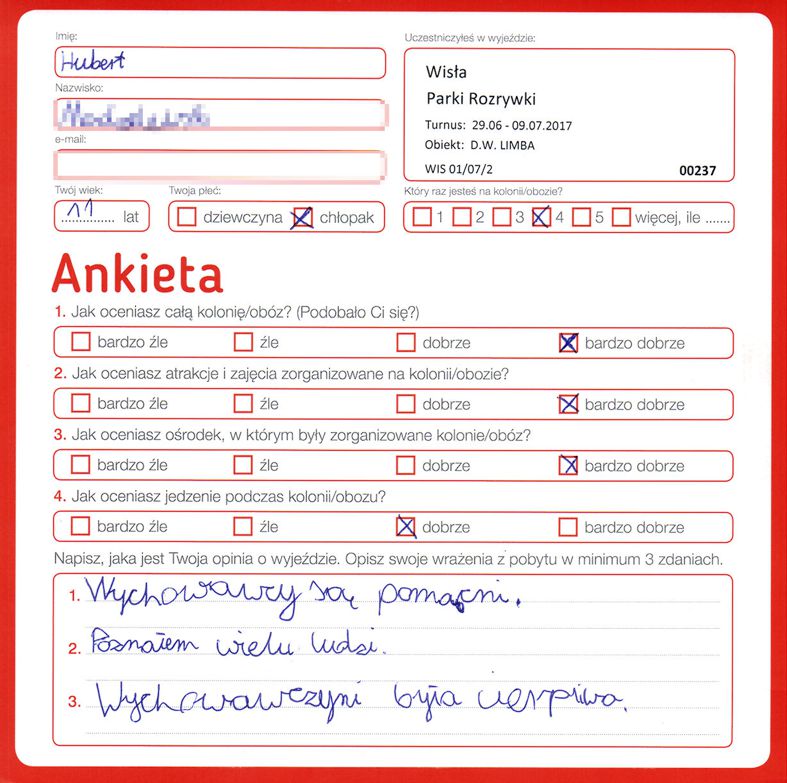 Imię:
Hubert
Nazwisko:
e-mail:
Twój wiek:
11 lat
Twoja płeć:
dziewczyna chłopak
Uczestniczyłeś w wyjeździe:
Wisła
Parki Rozrywki
Turnus: 29.06 - 09.07.2017
Obiekt: D.W. LIMBA
WIS 01/07/2 00237
Który raz jesteś na kolonii/obozie?
1 2 3 4 5 więcej, ile .......
Ankieta
1. Jak oceniasz całą kolonię/obóz? (Podobało Ci się?)
bardzo źle źle dobrze bardzo dobrze
2. Jak oceniasz atrakcje i zajęcia zorganizowane na kolonii/obozie?
bardzo źle źle dobrze bardzo dobrze
3. Jak oceniasz ośrodek, w którym były zorganizowane kolonie/obóz?
bardzo źle źle dobrze bardzo dobrze
4. Jak oceniasz jedzenie podczas kolonii/obozu?
bardzo źle źle dobrze bardzo dobrze
Napisz, jaka jest Twoja opinia o wyjeździe. Opisz swoje wrażenia z pobytu w minimum 3 zdaniach.
1. Wychowawcy są pomocni.
2. Poznałem wielu ludzi.
3. Wychowawczyni była cierpliwa.